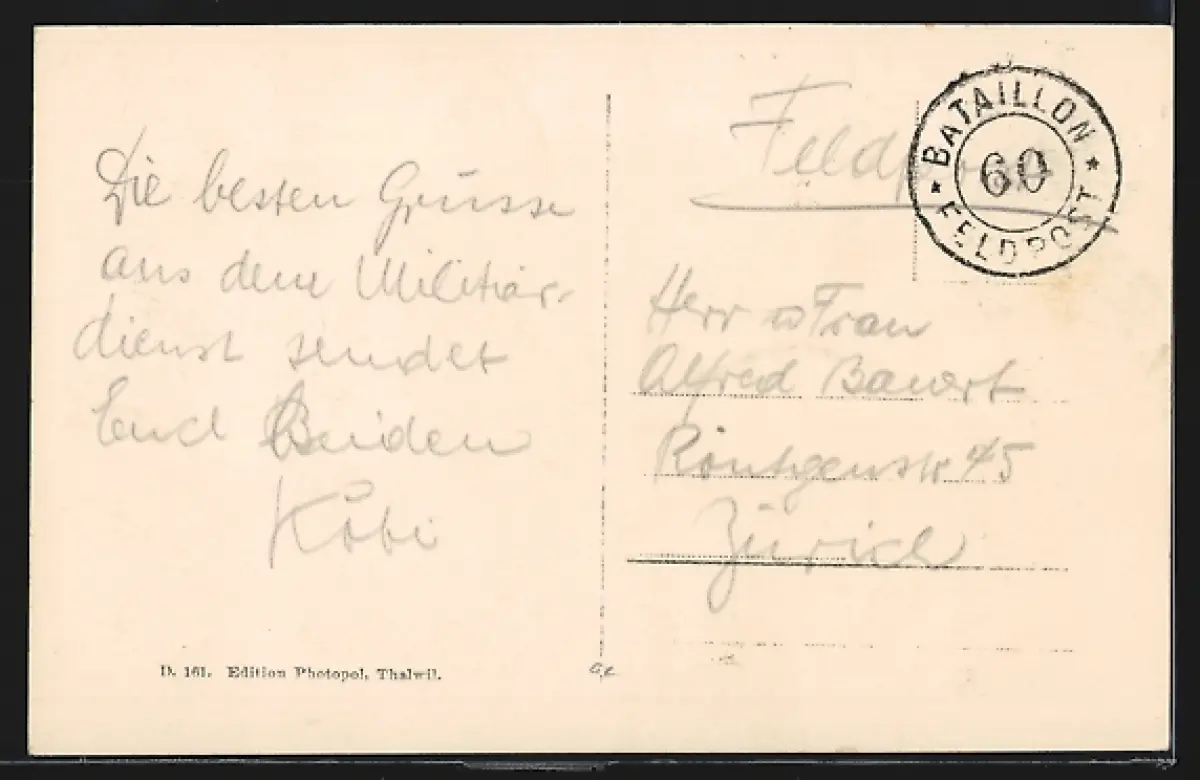 Die besten Grüsse
aus dem Militär-
dienst sendet
Euch Beiden
Köbi
D. 161. Edition Photopol, Thalwil.
Feldpost
BATAILLON
60
FELDPOST
Herr u Frau
Alfred Bauert
Röntgenstr 45
Zürich